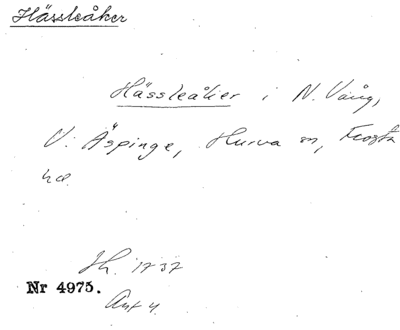 Hässleåker
Hässleåker i N. Vång,
V. Äspinge, Hurva sn, Frosta
hd.
Jh. 1737
Nr 4975.
Ant 4.